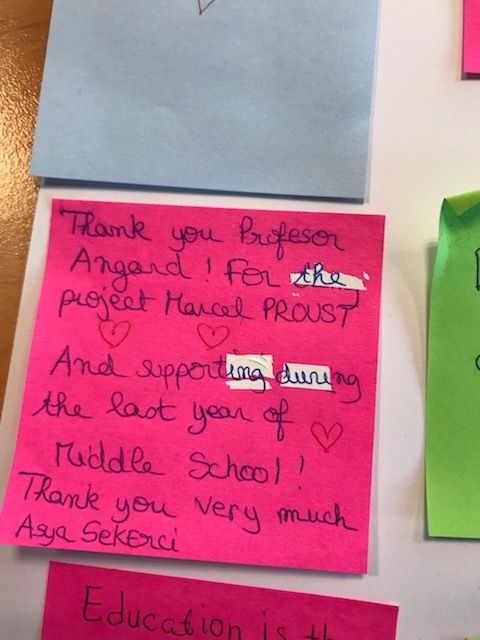 Thank you Profesor
Angard ! For the
project Marcel PROUST
And supporting during
the last year of
Middle School !
Thank you very much
Asya Sekerci
Education is th